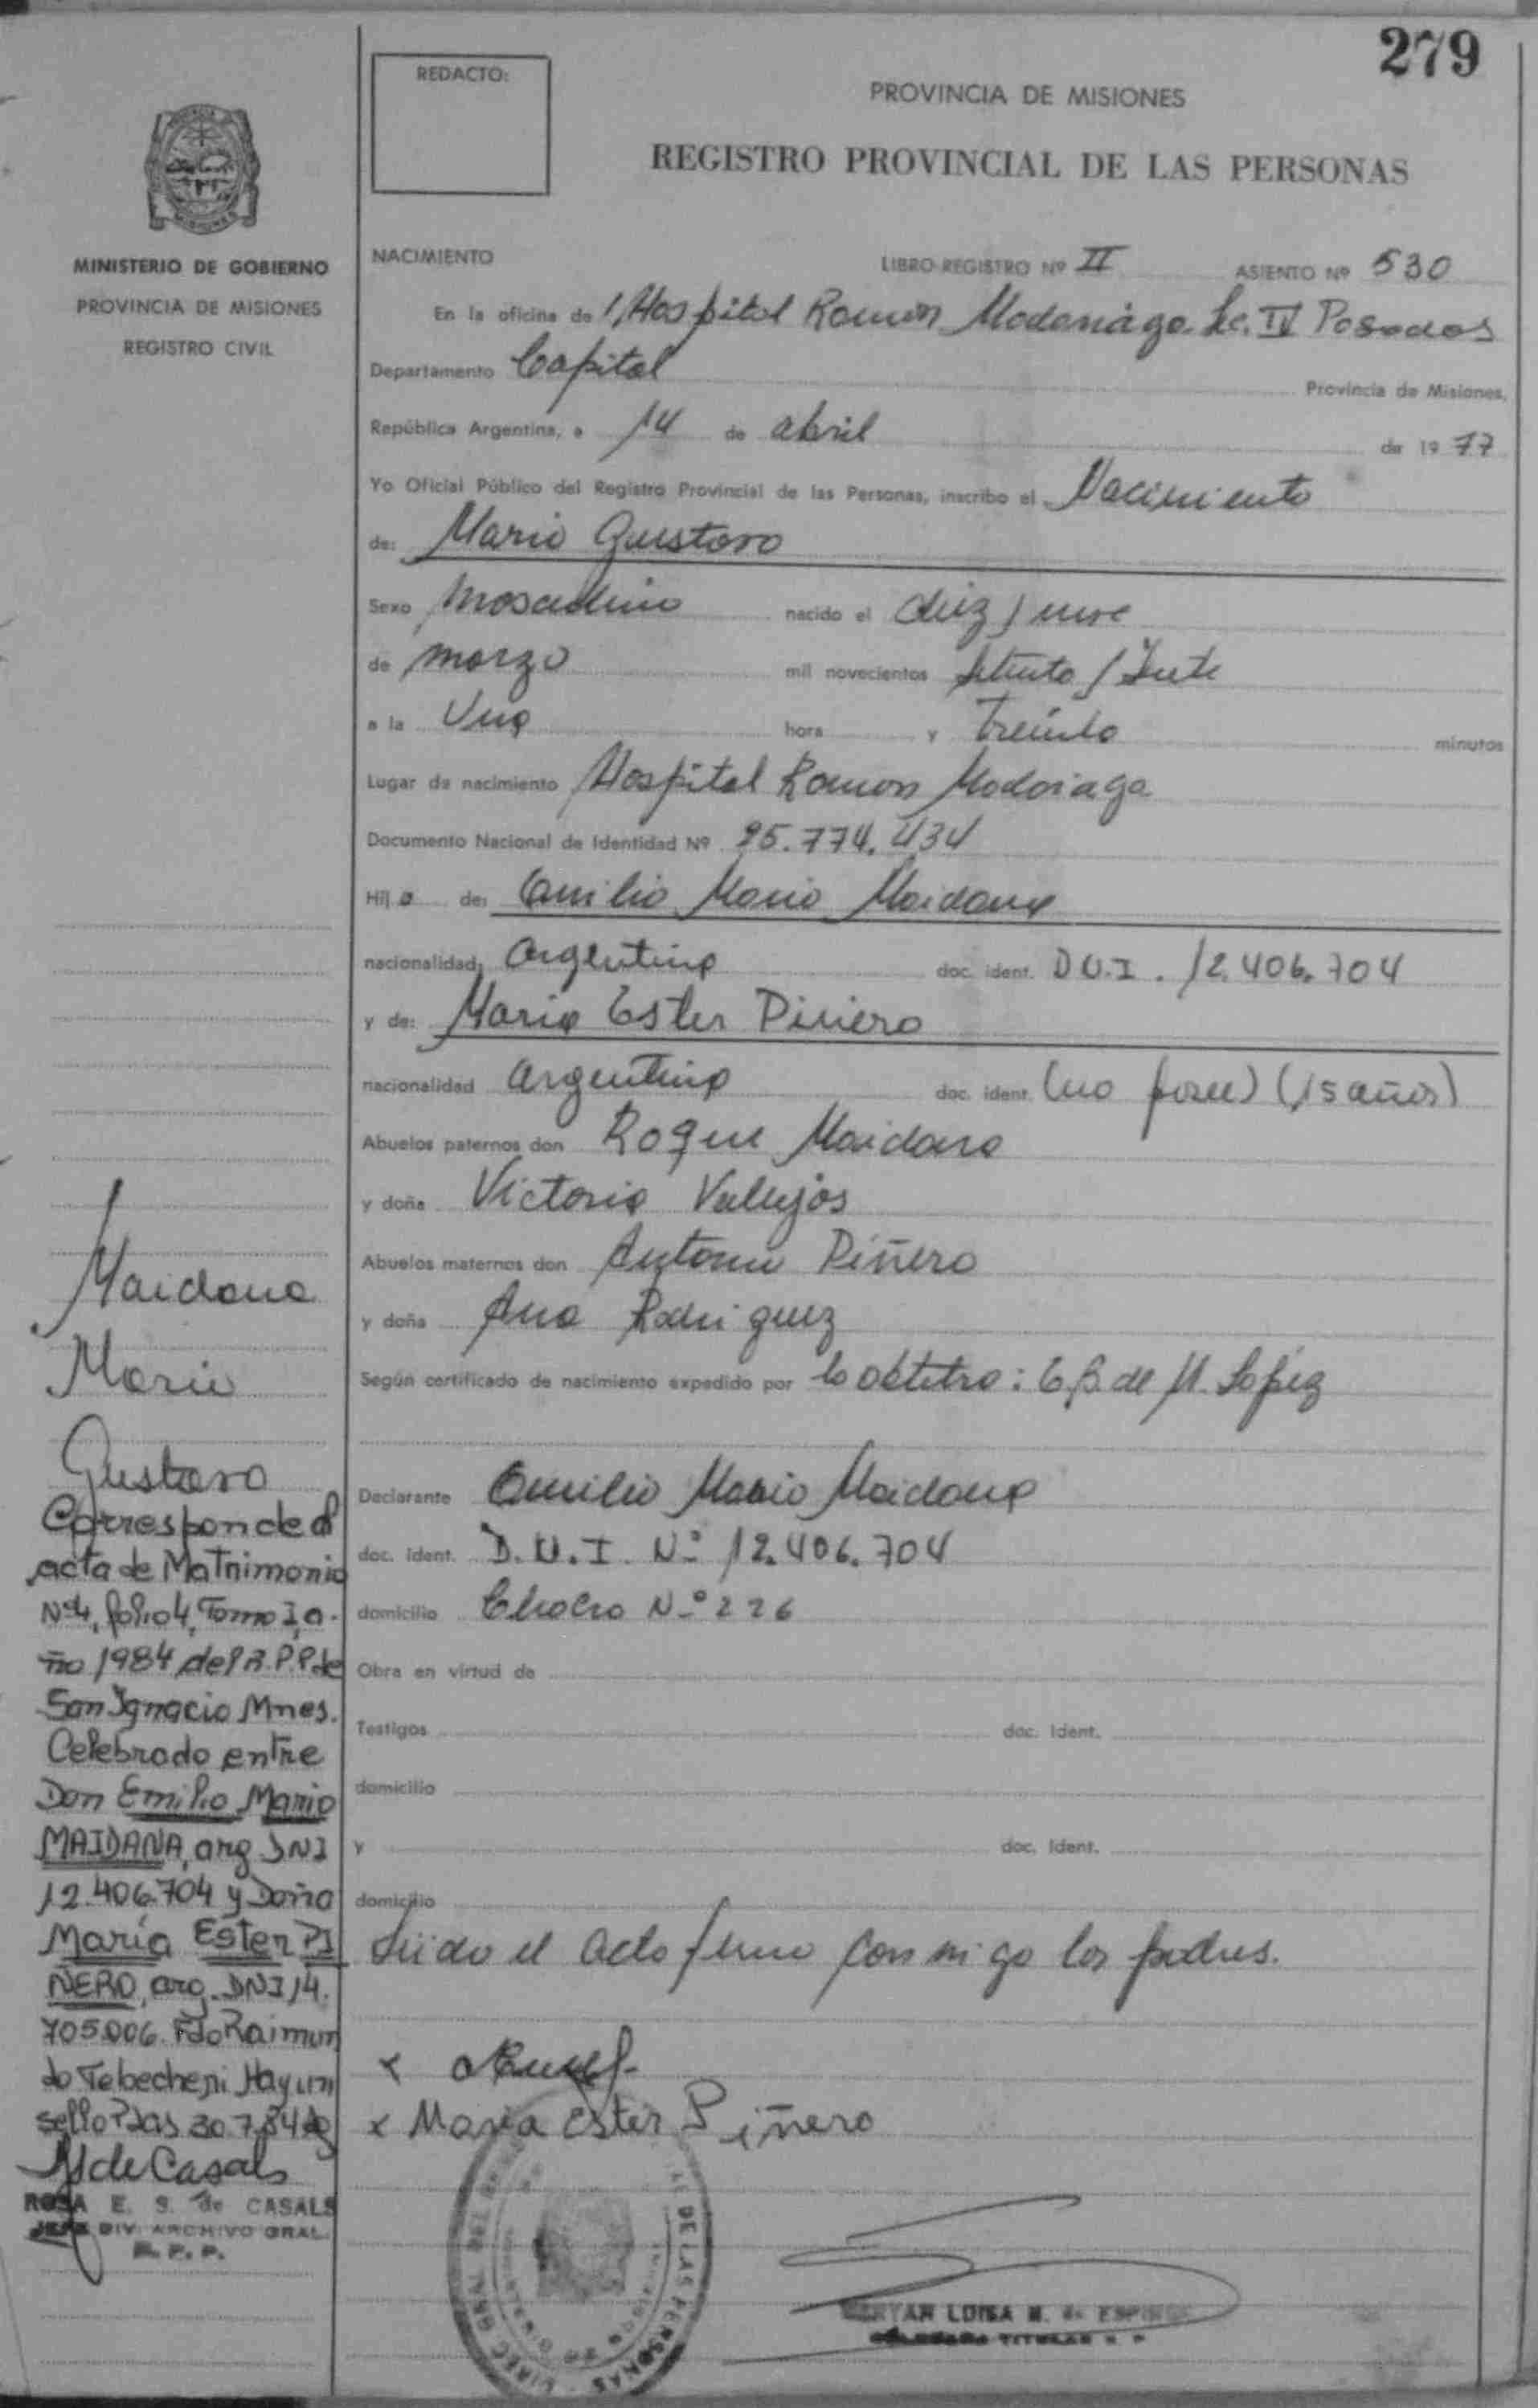 279
REDACTO:
PROVINCIA DE MISIONES
REGISTRO PROVINCIAL DE LAS PERSONAS
MINISTERIO DE GOBIERNO
PROVINCIA DE MISIONES
REGISTRO CIVIL
NACIMIENTO LIBRO REGISTRO Nº II ASIENTO Nº 530
En la oficina de Hospital Ramon Madariaga IV Posadas
Departamento Capital Provincia de Misiones,
República Argentina, a 14 de abril de 1977
Yo Oficial Público del Registro Provincial de las Personas, inscribo el Nacimiento
de: Mario Gustavo
Sexo masculino nacido el diez y nueve
de marzo mil novecientos setenta y siete
a la Una hora y treinta minutos
Lugar de nacimiento Hospital Ramon Madariaga
Documento Nacional de Identidad Nº 25.774.434
Hijo de: Emilio Mario Maidana
nacionalidad Argentina doc. ident. D.N.I. 12.406.704
y de: Maria Ester Piñero
nacionalidad argentina doc. ident. (no posee) (15 años)
Abuelos paternos don Roque Maidana
y doña Victoria Vallejos
Abuelos maternos don Antonio Piñero
y doña Ana Rodriguez
Según certificado de nacimiento expedido por la obstetra: de M. Lopez
Declarante Emilio Mario Maidana
doc. ident. D.N.I. Nº 12.406.704
domicilio Chaco Nº 226
Obra en virtud de
Testigos doc. ident.
domicilio
y doc. ident.
domicilio
Leido el acto firman conmigo los padres.
x
x Maria Ester Piñero
Maidana
Mario
Gustavo
Corresponde al
acta de Matrimonio
Nº4, folio 4, Tomo I, a-
ño 1984 del R.P.P. de
San Ignacio Mnes.
Celebrado entre
Don Emilio Mario
MAIDANA, arg. DNI
12.406.704 y Doña
María Ester PI
ÑERO, arg. DNI 14.
705.006. Fdo Raimun
do Tebecheri Hayum
sello Pdas 30.7.84
de Casals
ROSA E. S. de CASALS
JEFE DIV. ARCHIVO GRAL.
R. P. P.
DE LAS PERSONAS
DIREC GRAL
LUISA M. de
TITULAR